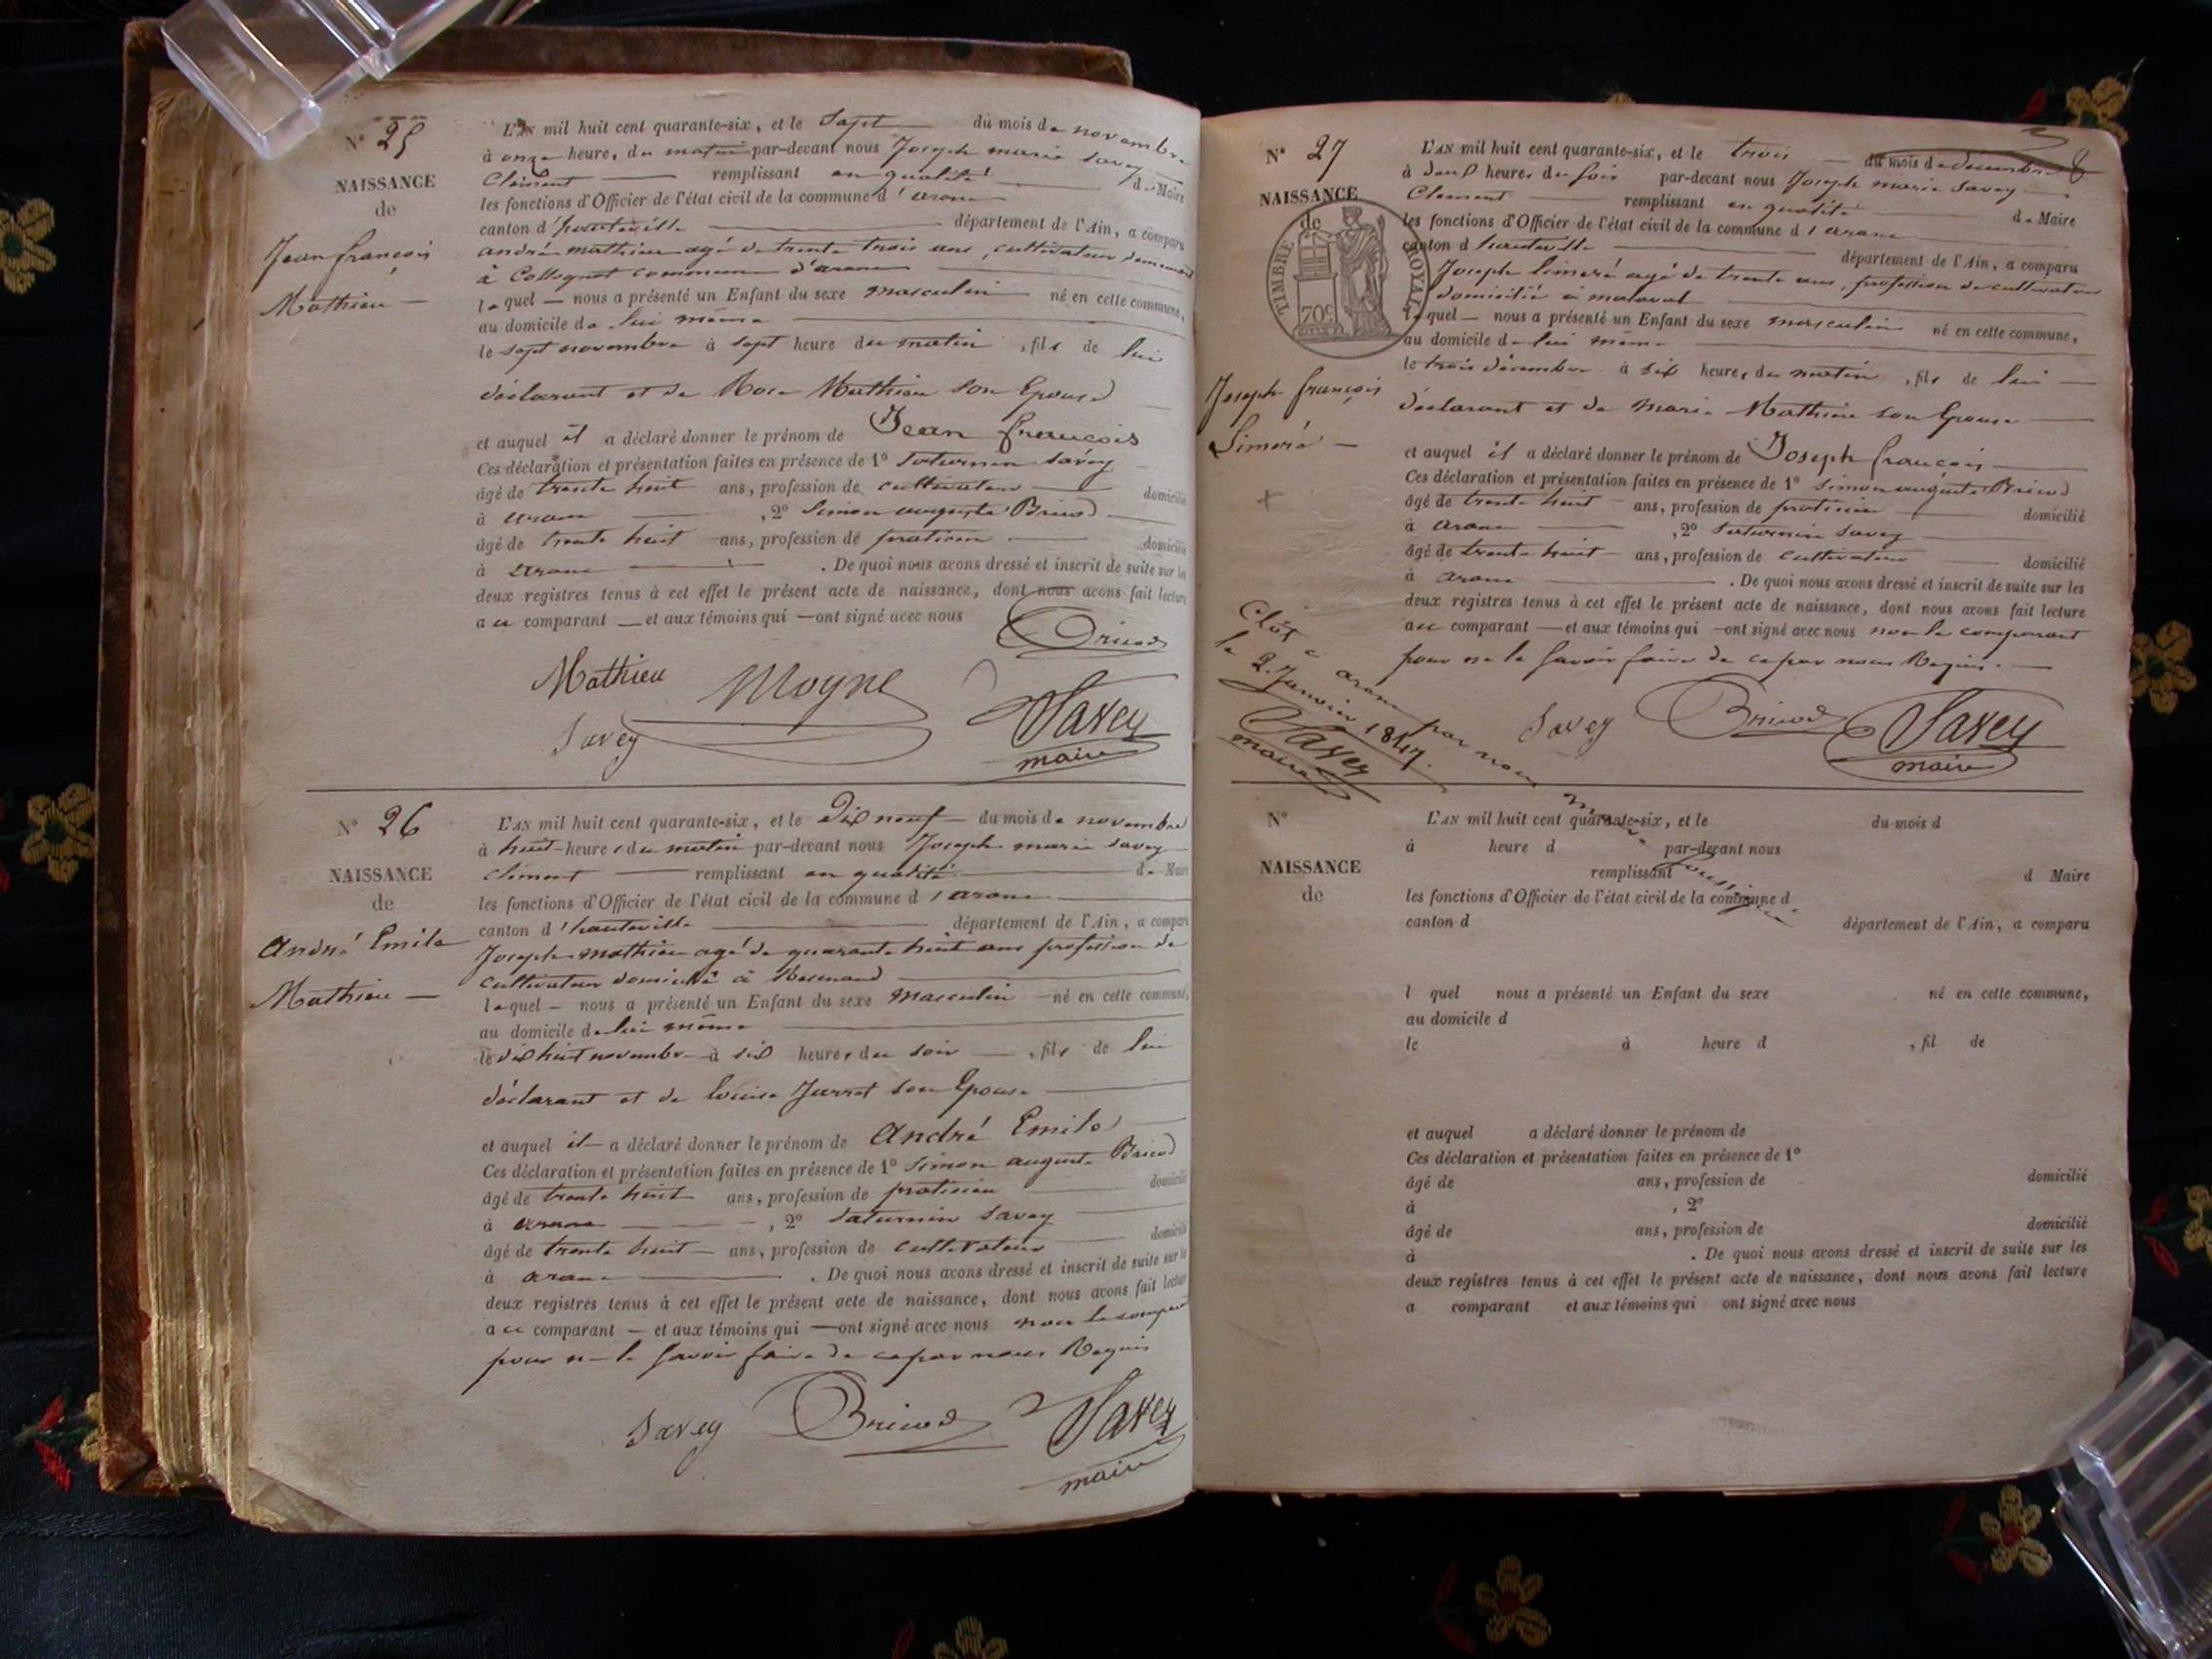 N° 25
NAISSANCE
de
Jean françois
Mathieu
L'AN mil huit cent quarante-six, et le Sept du mois de novembre
à onze heure, du matin par-devant nous Joseph marie Savey
Clément remplissant en qualité de Maire
les fonctions d'Officier de l'état civil de la commune d'arane
canton d'hauteville département de l'Ain, a comparu
andré mathieu agé de trente trois ans, cultivateur demeurant
à Collognat commune d'arane
lequel nous a présenté un Enfant du sexe masculin né en cette commune,
au domicile de lui même
le sept novembre à sept heure du matin, fils de lui
déclarant et de Rose Mathieu son Epouse
et auquel il a déclaré donner le prénom de Jean françois
Ces déclaration et présentation faites en présence de 1° Saturnin Savey
âgé de trente huit ans, profession de cultivateur domicilié
à arane, 2° Simon auguste Bricod
âgé de trente huit ans, profession de praticien domicilié
à arane. De quoi nous avons dressé et inscrit de suite sur les
deux registres tenus à cet effet le présent acte de naissance, dont nous avons fait lecture
au comparant et aux témoins qui ont signé avec nous
Bricod
Mathieu Moyne
Savey Savey
maire
N° 26
NAISSANCE
de
André Emile
Mathieu
L'AN mil huit cent quarante-six, et le Dix neuf du mois de novembre
à huit heures du matin par-devant nous Joseph marie Savey
Clément remplissant en qualité de Maire
les fonctions d'Officier de l'état civil de la commune d'arane
canton d'hauteville département de l'Ain, a comparu
Joseph mathieu agé de quarante huit ans profession de
cultivateur domicilié à
lequel nous a présenté un Enfant du sexe masculin né en cette commune,
au domicile de lui même
le dix huit novembre à six heures du soir, fils de lui
déclarant et de louise Juvret son Epouse
et auquel il a déclaré donner le prénom de André Emile
Ces déclaration et présentation faites en présence de 1° Simon auguste Bricod
âgé de trente huit ans, profession de praticien domicilié
à arane, 2° Saturnin Savey
âgé de trente huit ans, profession de cultivateur domicilié
à arane. De quoi nous avons dressé et inscrit de suite sur les
deux registres tenus à cet effet le présent acte de naissance, dont nous avons fait lecture
au comparant et aux témoins qui ont signé avec nous non le comparant
pour ne le savoir faire de ce par nous Requis
Savey Bricod Savey
maire
8
N° 27
NAISSANCE
de
TIMBRE ROYAL
70c
Joseph françois
Limeré
L'AN mil huit cent quarante-six, et le trois du mois de décembre
à deux heures du soir par-devant nous Joseph marie Savey
Clément remplissant en qualité de Maire
les fonctions d'Officier de l'état civil de la commune d'arane
canton d'hauteville département de l'Ain, a comparu
Joseph Limeré agé de trente ans, profession de cultivateur
domicilié à malaval
lequel nous a présenté un Enfant du sexe masculin né en cette commune,
au domicile de lui même
le trois décembre à six heures du matin, fils de lui
déclarant et de Marie Mathieu son Epouse
et auquel il a déclaré donner le prénom de Joseph françois
Ces déclaration et présentation faites en présence de 1° Simon auguste Bricod
âgé de trente huit ans, profession de praticien domicilié
à arane, 2° Saturnin Savey
âgé de trente huit ans, profession de cultivateur domicilié
à arane. De quoi nous avons dressé et inscrit de suite sur les
deux registres tenus à cet effet le présent acte de naissance, dont nous avons fait lecture
au comparant et aux témoins qui ont signé avec nous non le comparant
pour ne le savoir faire de ce par nous Requis.
Savey Bricod Savey
maire
Clôt à arane par nous maire soussigné
le 2 Janvier 1847.
Savey
maire
N°
NAISSANCE
de
L'AN mil huit cent quarante-six, et le du mois d
à heure d par-devant nous
remplissant d Maire
les fonctions d'Officier de l'état civil de la commune d
canton d département de l'Ain, a comparu
l quel nous a présenté un Enfant du sexe né en cette commune,
au domicile d
le à heure d , fil de
et auquel a déclaré donner le prénom de
Ces déclaration et présentation faites en présence de 1°
âgé de ans, profession de domicilié
à , 2°
âgé de ans, profession de domicilié
à . De quoi nous avons dressé et inscrit de suite sur les
deux registres tenus à cet effet le présent acte de naissance, dont nous avons fait lecture
a comparant et aux témoins qui ont signé avec nous